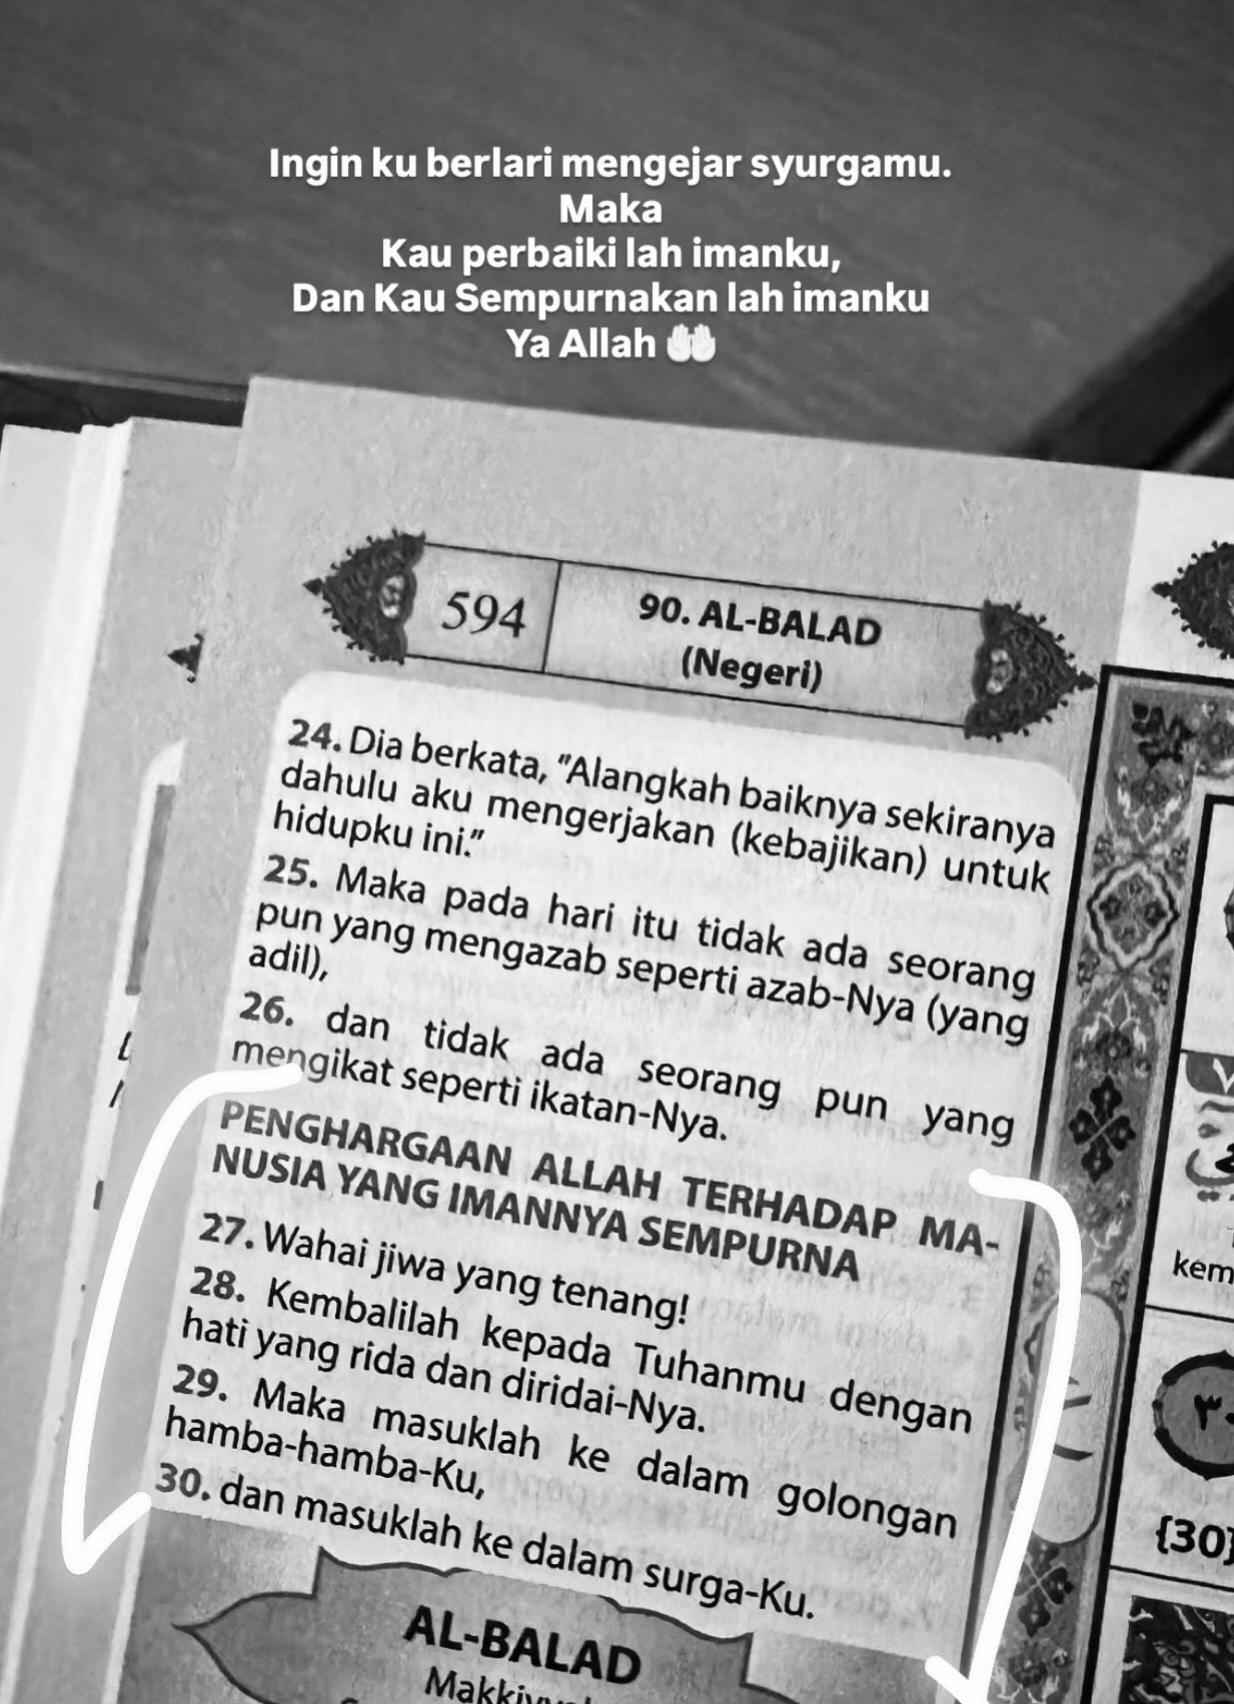 Ingin ku berlari mengejar syurgamu.
Maka
Kau perbaiki lah imanku,
Dan Kau Sempurnakan lah imanku
Ya Allah 🤲🏻
594
90. AL-BALAD
(Negeri)
24. Dia berkata, "Alangkah baiknya sekiranya
dahulu aku mengerjakan (kebajikan) untuk
hidupku ini."
25. Maka pada hari itu tidak ada seorang
pun yang mengazab seperti azab-Nya (yang
adil),
26. dan tidak ada seorang pun yang
mengikat seperti ikatan-Nya.
PENGHARGAAN ALLAH TERHADAP MA-
NUSIA YANG IMANNYA SEMPURNA
27. Wahai jiwa yang tenang!
28. Kembalilah kepada Tuhanmu dengan
hati yang rida dan diridai-Nya.
29. Maka masuklah ke dalam golongan
hamba-hamba-Ku,
30. dan masuklah ke dalam surga-Ku.
AL-BALAD
kem
٣٠
{30}